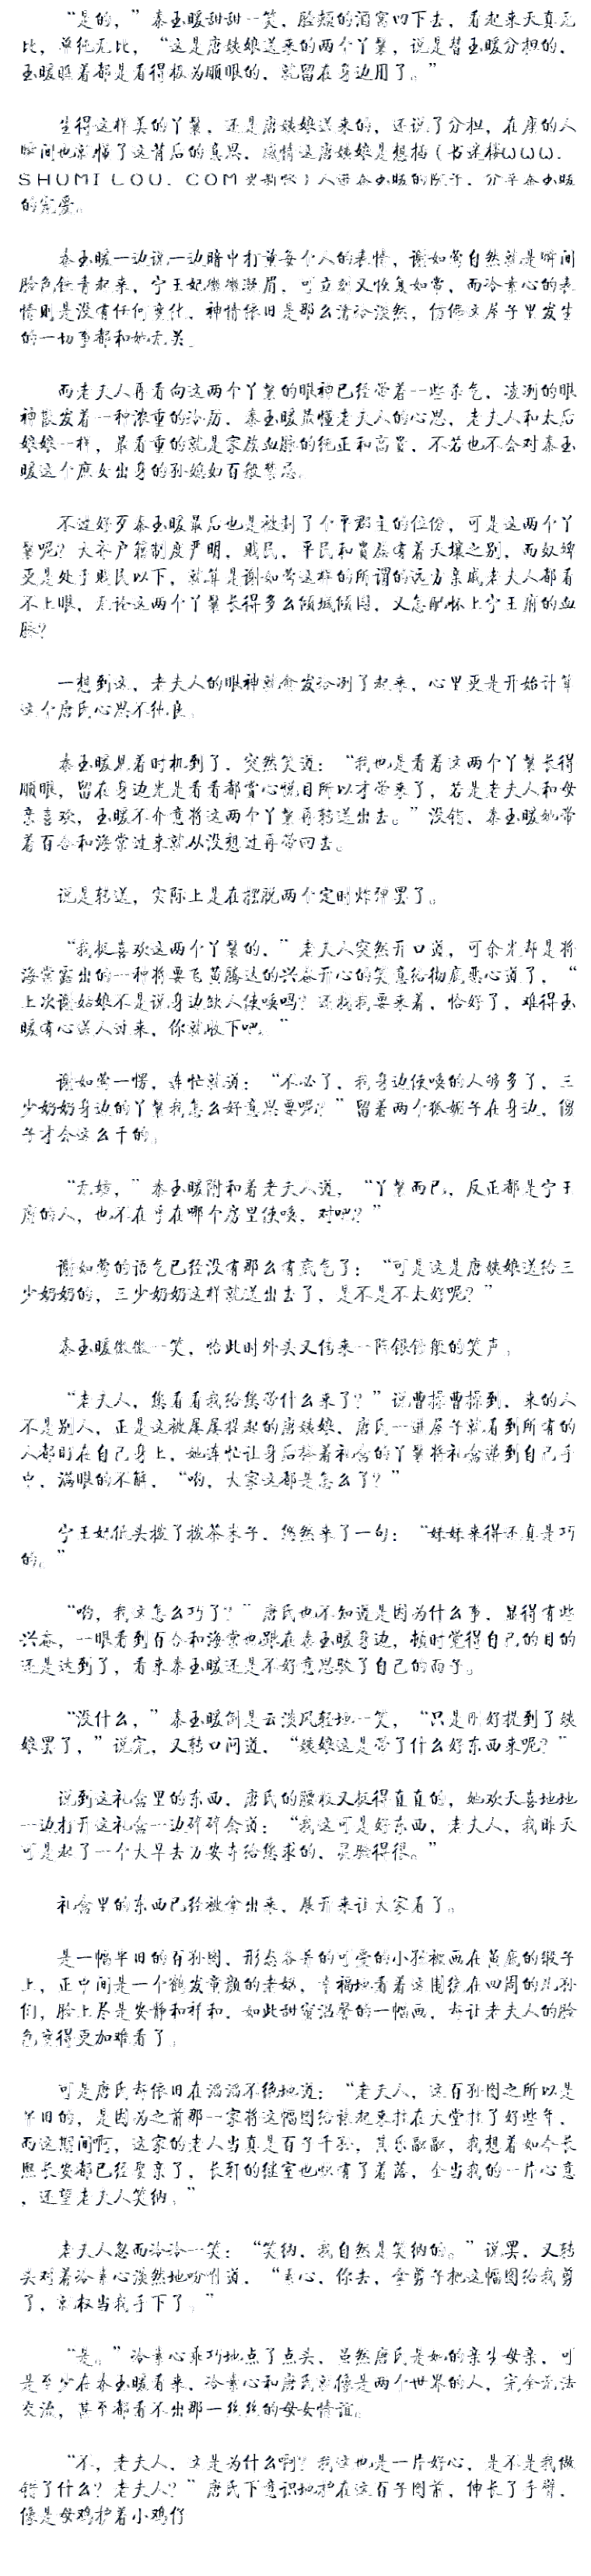 “是的，”秦玉暖甜甜一笑，脸颊的酒窝凹下去，看起来天真无
比，单纯无比，“这是唐姨娘送来的两个丫鬟，说是替玉暖分担的，
玉暖瞧着都是看得极为顺眼的，就留在身边用了。”
生得这样美的丫鬟，还是唐姨娘送来的，还说了分担，在座的人
瞬间也就懂了这背后的意思，感情这唐姨娘是想插（书迷楼ωωω．
ＳＨＵＭＩＬＯＵ．ＣＯＭ更新快）人进秦玉暖的院子，分享秦玉暖
的宠爱。
秦玉暖一边说一边暗中打量每个人的表情，谢如莺自然就是瞬间
脸色铁青起来，宁王妃微微凝眉，可立刻又恢复如常，而冷素心的表
情则是没有任何变化，神情依旧是那么清冷淡然，仿佛这屋子里发生
的一切事都和她无关。
而老夫人再看向这两个丫鬟的眼神已经带着一些杀气，凌冽的眼
神散发着一种浓重的冷厉，秦玉暖最懂老夫人的心思，老夫人和太后
娘娘一样，最看重的就是家族血脉的纯正和高贵，不若也不会对秦玉
暖这个庶女出身的孙媳妇百般禁忌。
不过好歹秦玉暖最后也是被封了个平郡主的位份，可是这两个丫
鬟呢？大齐户籍制度严明，贱民，平民和贵族有着天壤之别，而奴婢
更是处于贱民以下，就算是谢如莺这样的所谓的远方亲戚老夫人都看
不上眼，无论这两个丫鬟长得多么倾城倾国，又怎配怀上宁王府的血
脉？
一想到这，老夫人的眼神就愈发冷冽了起来，心里更是开始计算
这个唐氏心思不纯良。
秦玉暖见着时机到了，突然笑道：“我也是看着这两个丫鬟长得
顺眼，留在身边光是看看都赏心悦目所以才带来了，若是老夫人和母
亲喜欢，玉暖不介意将这两个丫鬟再转送出去。”没错，秦玉暖她带
着百合和海棠过来就从没想过再带回去。
说是转送，实际上是在摆脱两个定时炸弹罢了。
“我挺喜欢这两个丫鬟的，”老夫人突然开口道，可余光却是将
海棠露出的一种将要飞黄腾达的兴奋开心的笑意给彻底恶心道了，“
上次谢姑娘不是说身边缺人使唤吗？还找我要来着，恰好了，难得玉
暖有心送人过来，你就收下吧。”
谢如莺一愣，连忙就道：“不必了，我身边使唤的人够多了，三
少奶奶身边的丫鬟我怎么好意思要呢？”留着两个狐媚子在身边，傻
子才会这么干的。
“无妨，”秦玉暖附和着老夫人道，“丫鬟而已，反正都是宁王
府的人，也不在乎在哪个房里使唤，对吧？”
谢如莺的语气已经没有那么有底气了：“可是这是唐姨娘送给三
少奶奶的，三少奶奶这样就送出去了，是不是不太好呢？”
秦玉暖微微一笑，恰此时外头又传来一阵银铃般的笑声。
“老夫人，您看看我给您带什么来了？”说曹操曹操到，来的人
不是别人，正是这被屡屡提起的唐姨娘，唐氏一进屋子就看到所有的
人都盯在自己身上，她连忙让身后捧着礼盒的丫鬟将礼盒递到自己手
中，满眼的不解，“哟，大家这都是怎么了？”
宁王妃低头拨了拨茶末子，悠然来了一句：“妹妹来得还真是巧
的。”
“哟，我这怎么巧了？”唐氏也不知道是因为什么事，显得有些
兴奋，一眼看到百合和海棠也跟在秦玉暖身边，顿时觉得自己的目的
还是达到了，看来秦玉暖还是不好意思驳了自己的面子。
“没什么，”秦玉暖倒是云淡风轻地一笑，“只是刚好提到了姨
娘罢了，”说完，又转口问道，“姨娘这是带了什么好东西来呢？”
说到这礼盒里的东西，唐氏的腰板又挺得直直的，她欢天喜地地
一边打开这礼盒一边碎碎念道：“我这可是好东西，老夫人，我昨天
可是起了一个大早去万安寺给您求的，灵验得很。”
礼盒里的东西已经被拿出来，展开来让大家看了。
是一幅半旧的百孙图，形态各异的可爱的小孩被画在黄底的缎子
上，正中间是一个鹤发童颜的老妪，幸福地看着这围绕在四周的儿孙
们，脸上尽是安静和祥和，如此甜蜜温馨的一幅画，却让老夫人的脸
色变得更加难看了。
可是唐氏却依旧在滔滔不绝地道：“老夫人，这百孙图之所以是
半旧的，是因为之前那一家将这幅图给裱起来挂在大堂挂了好些年，
而这期间啊，这家的老人当真是百子千孙，其乐融融，我想着如今长
熙长安都已经娶亲了，长轩的继室也快有了着落，全当我的一片心意
，还望老夫人笑纳。”
老夫人忽而冷冷一笑：“笑纳，我自然是笑纳的。”说罢，又转
头对着冷素心淡然地吩咐道，“素心，你去，拿剪子把这幅图给我剪
了，就权当我手下了。”
“是。”冷素心乖巧地点了点头，虽然唐氏是她的亲生母亲，可
是至少在秦玉暖看来，冷素心和唐氏就像是两个世界的人，完全无法
交流，甚至都看不出那一丝丝的母女情谊。
“不，老夫人，这是为什么啊？我这也是一片好心，是不是我做
错了什么？老夫人？”唐氏下意识地护在这百子图前，伸长了手臂，
像是母鸡护着小鸡仔